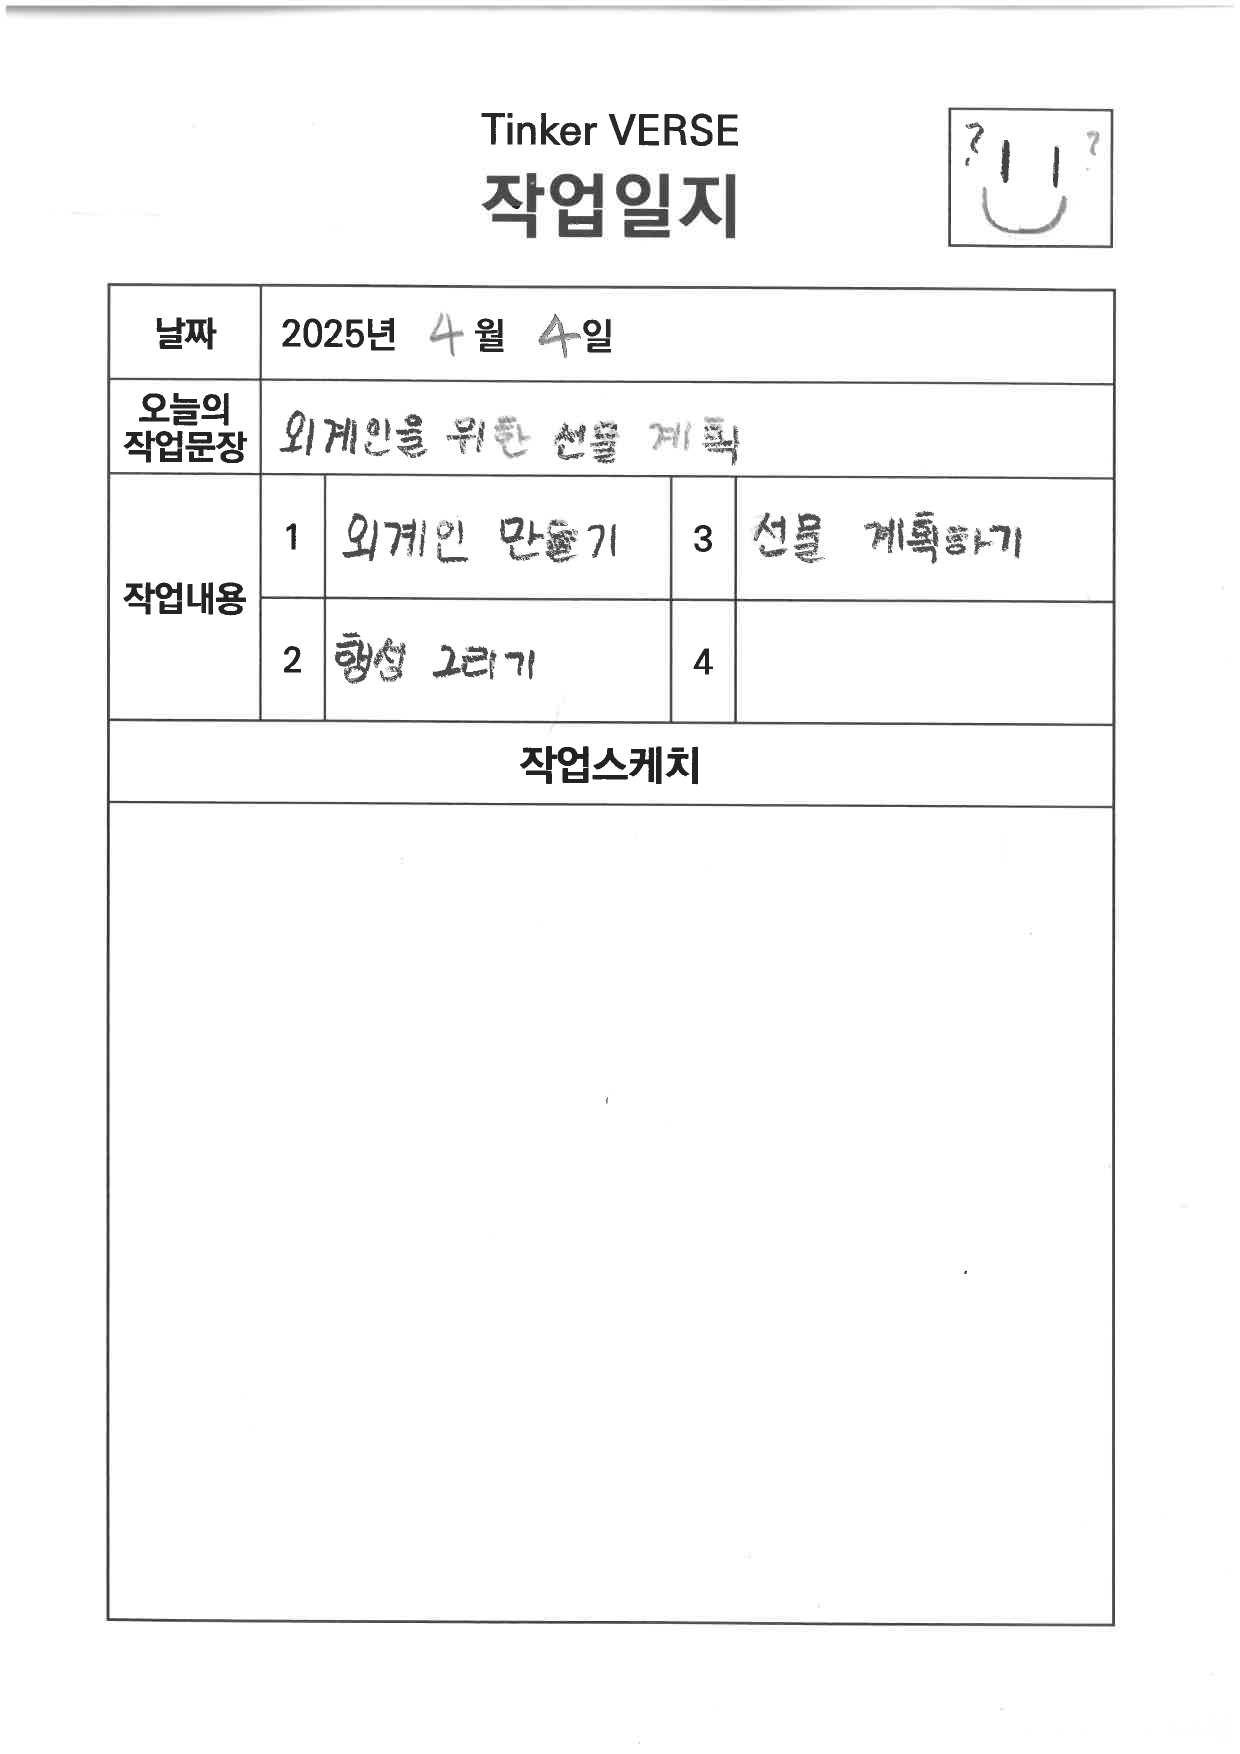 Tinker VERSE
작업일지
? ?
날짜 2025년 4월 4일
오늘의
작업문장
외계인을 위한 선물 계획
작업내용
1 외계인 만들기
3 선물 계획하기
2 행성 그리기
4
작업스케치